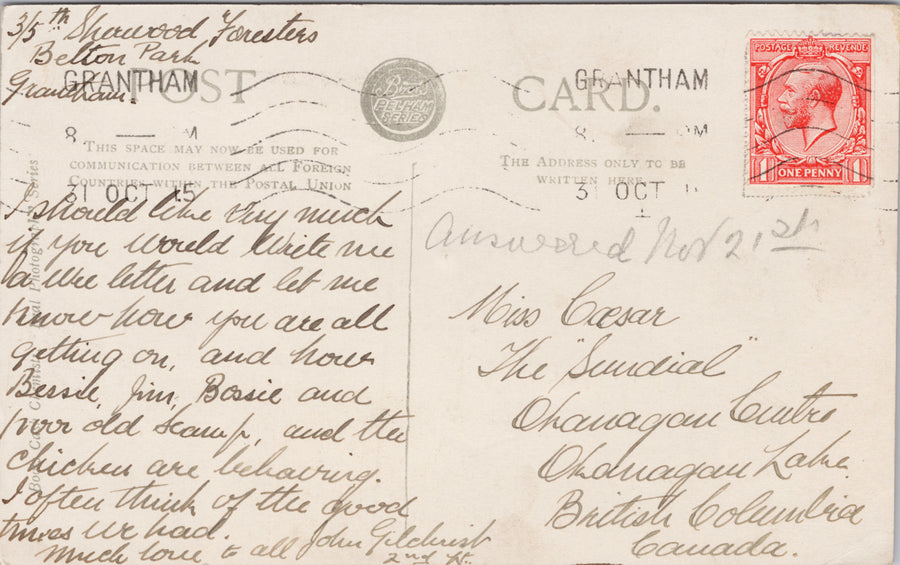 3/5th Sherwood Foresters
Belton Park
Grantham.
POST CARD.
Boots
PELHAM
SERIES
GRANTHAM
8 — M
31 OCT 15
GRANTHAM
8 — PM
31 OCT 1
POSTAGE REVENUE
1 ONE PENNY 1
THIS SPACE MAY NOW BE USED FOR
COMMUNICATION BETWEEN ALL FOREIGN
COUNTRIES WITHIN THE POSTAL UNION
THE ADDRESS ONLY TO BE
WRITTEN HERE
I should like very much
if you would write me
a wee letter and let me
know how you are all
getting on, and how
Bessie, Jim, Bossie and
poor old Scamp, and the
chicken are behaving.
I often think of the good
times we had.
Much love to all John Gilchrist
2nd Lt.
answered Nov 21st
Miss Cæsar
The "Sundial"
Okanagan Centre
Okanagan Lake
British Columbia
Canada.
Photographic Series